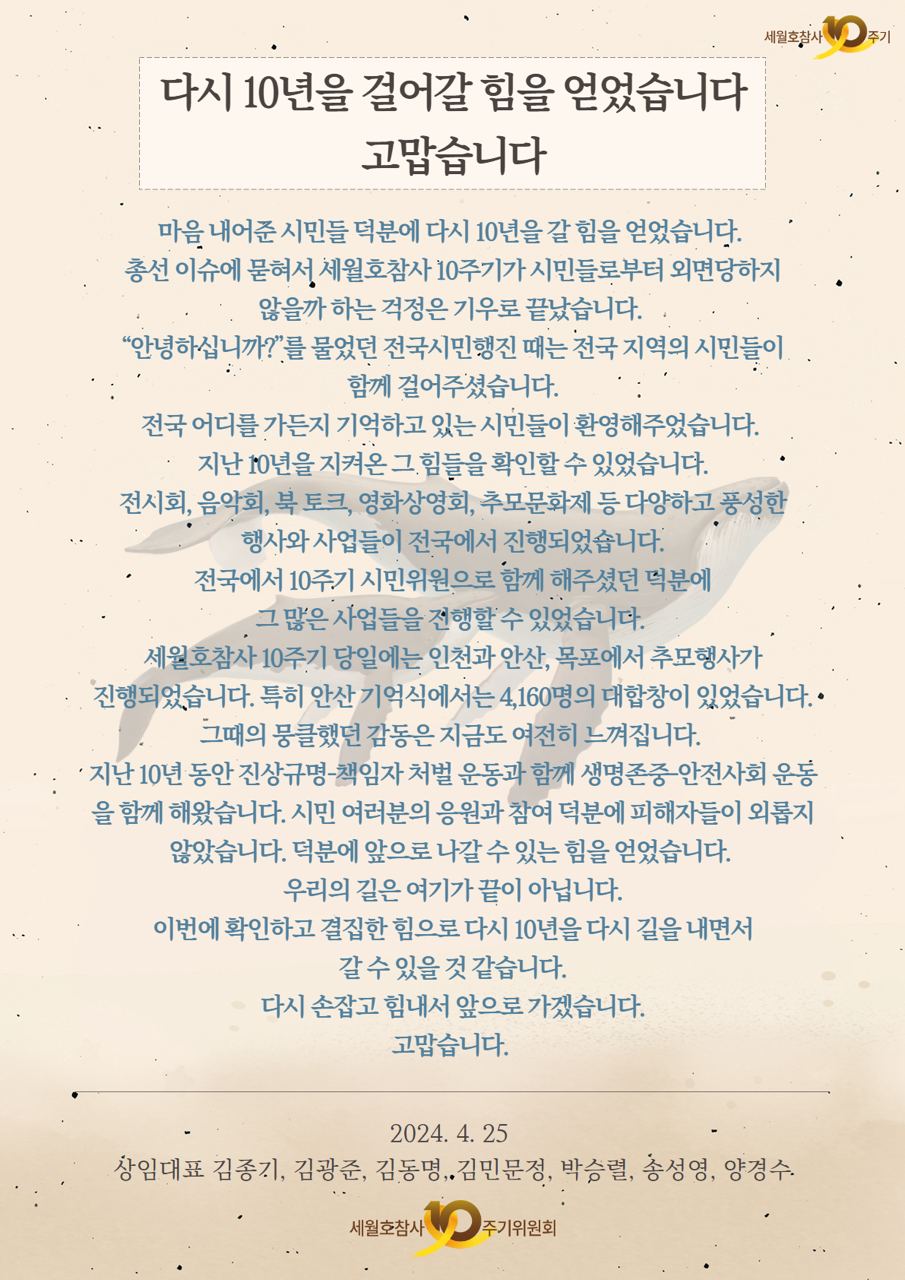 세월호참사 10주기
다시 10년을 걸어갈 힘을 얻었습니다
고맙습니다
마음 내어준 시민들 덕분에 다시 10년을 갈 힘을 얻었습니다.
총선 이슈에 묻혀서 세월호참사 10주기가 시민들로부터 외면당하지
않을까 하는 걱정은 기우로 끝났습니다.
“안녕하십니까?”를 물었던 전국시민행진 때는 전국 지역의 시민들이
함께 걸어주셨습니다.
전국 어디를 가든지 기억하고 있는 시민들이 환영해주었습니다.
지난 10년을 지켜온 그 힘들을 확인할 수 있었습니다.
전시회, 음악회, 북 토크, 영화상영회, 추모문화제 등 다양하고 풍성한
행사와 사업들이 전국에서 진행되었습니다.
전국에서 10주기 시민위원으로 함께 해주셨던 덕분에
그 많은 사업들을 진행할 수 있었습니다.
세월호참사 10주기 당일에는 인천과 안산, 목포에서 추모행사가
진행되었습니다. 특히 안산 기억식에서는 4,160명의 대합창이 있었습니다.
그때의 뭉클했던 감동은 지금도 여전히 느껴집니다.
지난 10년 동안 진상규명-책임자 처벌 운동과 함께 생명존중-안전사회 운동
을 함께 해왔습니다. 시민 여러분의 응원과 참여 덕분에 피해자들이 외롭지
않았습니다. 덕분에 앞으로 나갈 수 있는 힘을 얻었습니다.
우리의 길은 여기가 끝이 아닙니다.
이번에 확인하고 결집한 힘으로 다시 10년을 다시 길을 내면서
갈 수 있을 것 같습니다.
다시 손잡고 힘내서 앞으로 가겠습니다.
고맙습니다.
2024. 4. 25
상임대표 김종기, 김광준, 김동명, 김민문정, 박승렬, 송성영, 양경수
세월호참사 10주기위원회